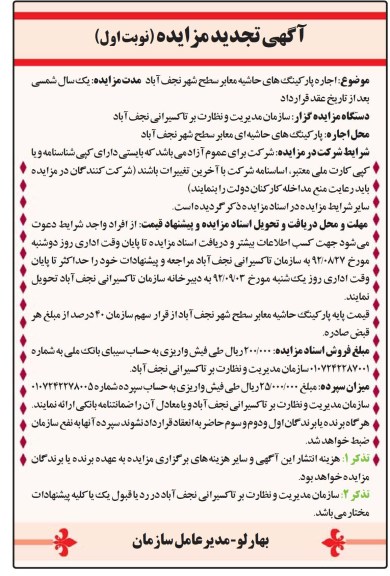 آگهی تجدید مزایده (نوبت اول)
موضوع: اجاره پارکینگ های حاشیه معابر سطح شهر نجف آباد مدت مزایده: یک سال شمسی
بعد از تاریخ عقد قرارداد
دستگاه مزایده گزار: سازمان مدیریت و نظارت بر تاکسیرانی نجف آباد
محل اجاره: پارکینگ های حاشیه ای معابر سطح شهر نجف آباد
شرایط شرکت در مزایده: شرکت برای عموم آزاد می باشد که بایستی دارای کپی شناسنامه و یا
کپی کارت ملی معتبر، اساسنامه شرکت با آخرین تغییرات باشند (شرکت کنندگان در مزایده
باید رعایت منع مداخله کارکنان دولت را بنمایند)
سایر شرایط مزایده در اسناد مزایده ذکر گردیده است.
مهلت و محل دریافت و تحویل اسناد مزایده و پیشنهاد قیمت: از افراد واجد شرایط دعوت
می شود جهت کسب اطلاعات بیشتر و دریافت اسناد مزایده تا پایان وقت اداری روز دوشنبه
مورخ ۹۲/۰۸/۲۷ به سازمان تاکسیرانی نجف آباد مراجعه و پیشنهادات خود را حداکثر تا پایان
وقت اداری روز یک شنبه مورخ ۹۲/۰۹/۰۳ به دبیرخانه سازمان تاکسیرانی نجف آباد تحویل
نمایند.
قیمت پایه پارکینگ حاشیه معابر سطح شهر نجف آباد از قرار سهم سازمان ۴۰ درصد از مبلغ هر
قبض صادره.
مبلغ فروش اسناد مزایده: ۲۰۰/۰۰۰ ریال طی فیش واریزی به حساب سیبای بانک ملی به شماره
۰۱۰۷۲۴۲۲۸۷۰۰۱ سازمان مدیریت و نظارت بر تاکسیرانی نجف آباد.
میزان سپرده: مبلغ ۲۵/۰۰۰/۰۰۰ ریال طی فیش واریزی به حساب سپرده شماره ۰۱۰۷۲۴۲۲۷۸۰۰۵
سازمان مدیریت و نظارت بر تاکسیرانی نجف آباد و یا معادل آن را ضمانتنامه بانکی ارائه نمایند.
هرگاه برنده یا برندگان اول و دوم و سوم حاضر به انعقاد قرارداد نشوند سپرده آنها به نفع سازمان
ضبط خواهد شد.
تذکر ۱: هزینه انتشار این آگهی و سایر هزینه های برگزاری مزایده به عهده برنده یا برندگان
مزایده خواهد بود.
تذکر ۲: سازمان مدیریت و نظارت بر تاکسیرانی نجف آباد در رد یا قبول یک یا کلیه پیشنهادات
مختار می باشد.
بهارلو-مدیرعامل سازمان